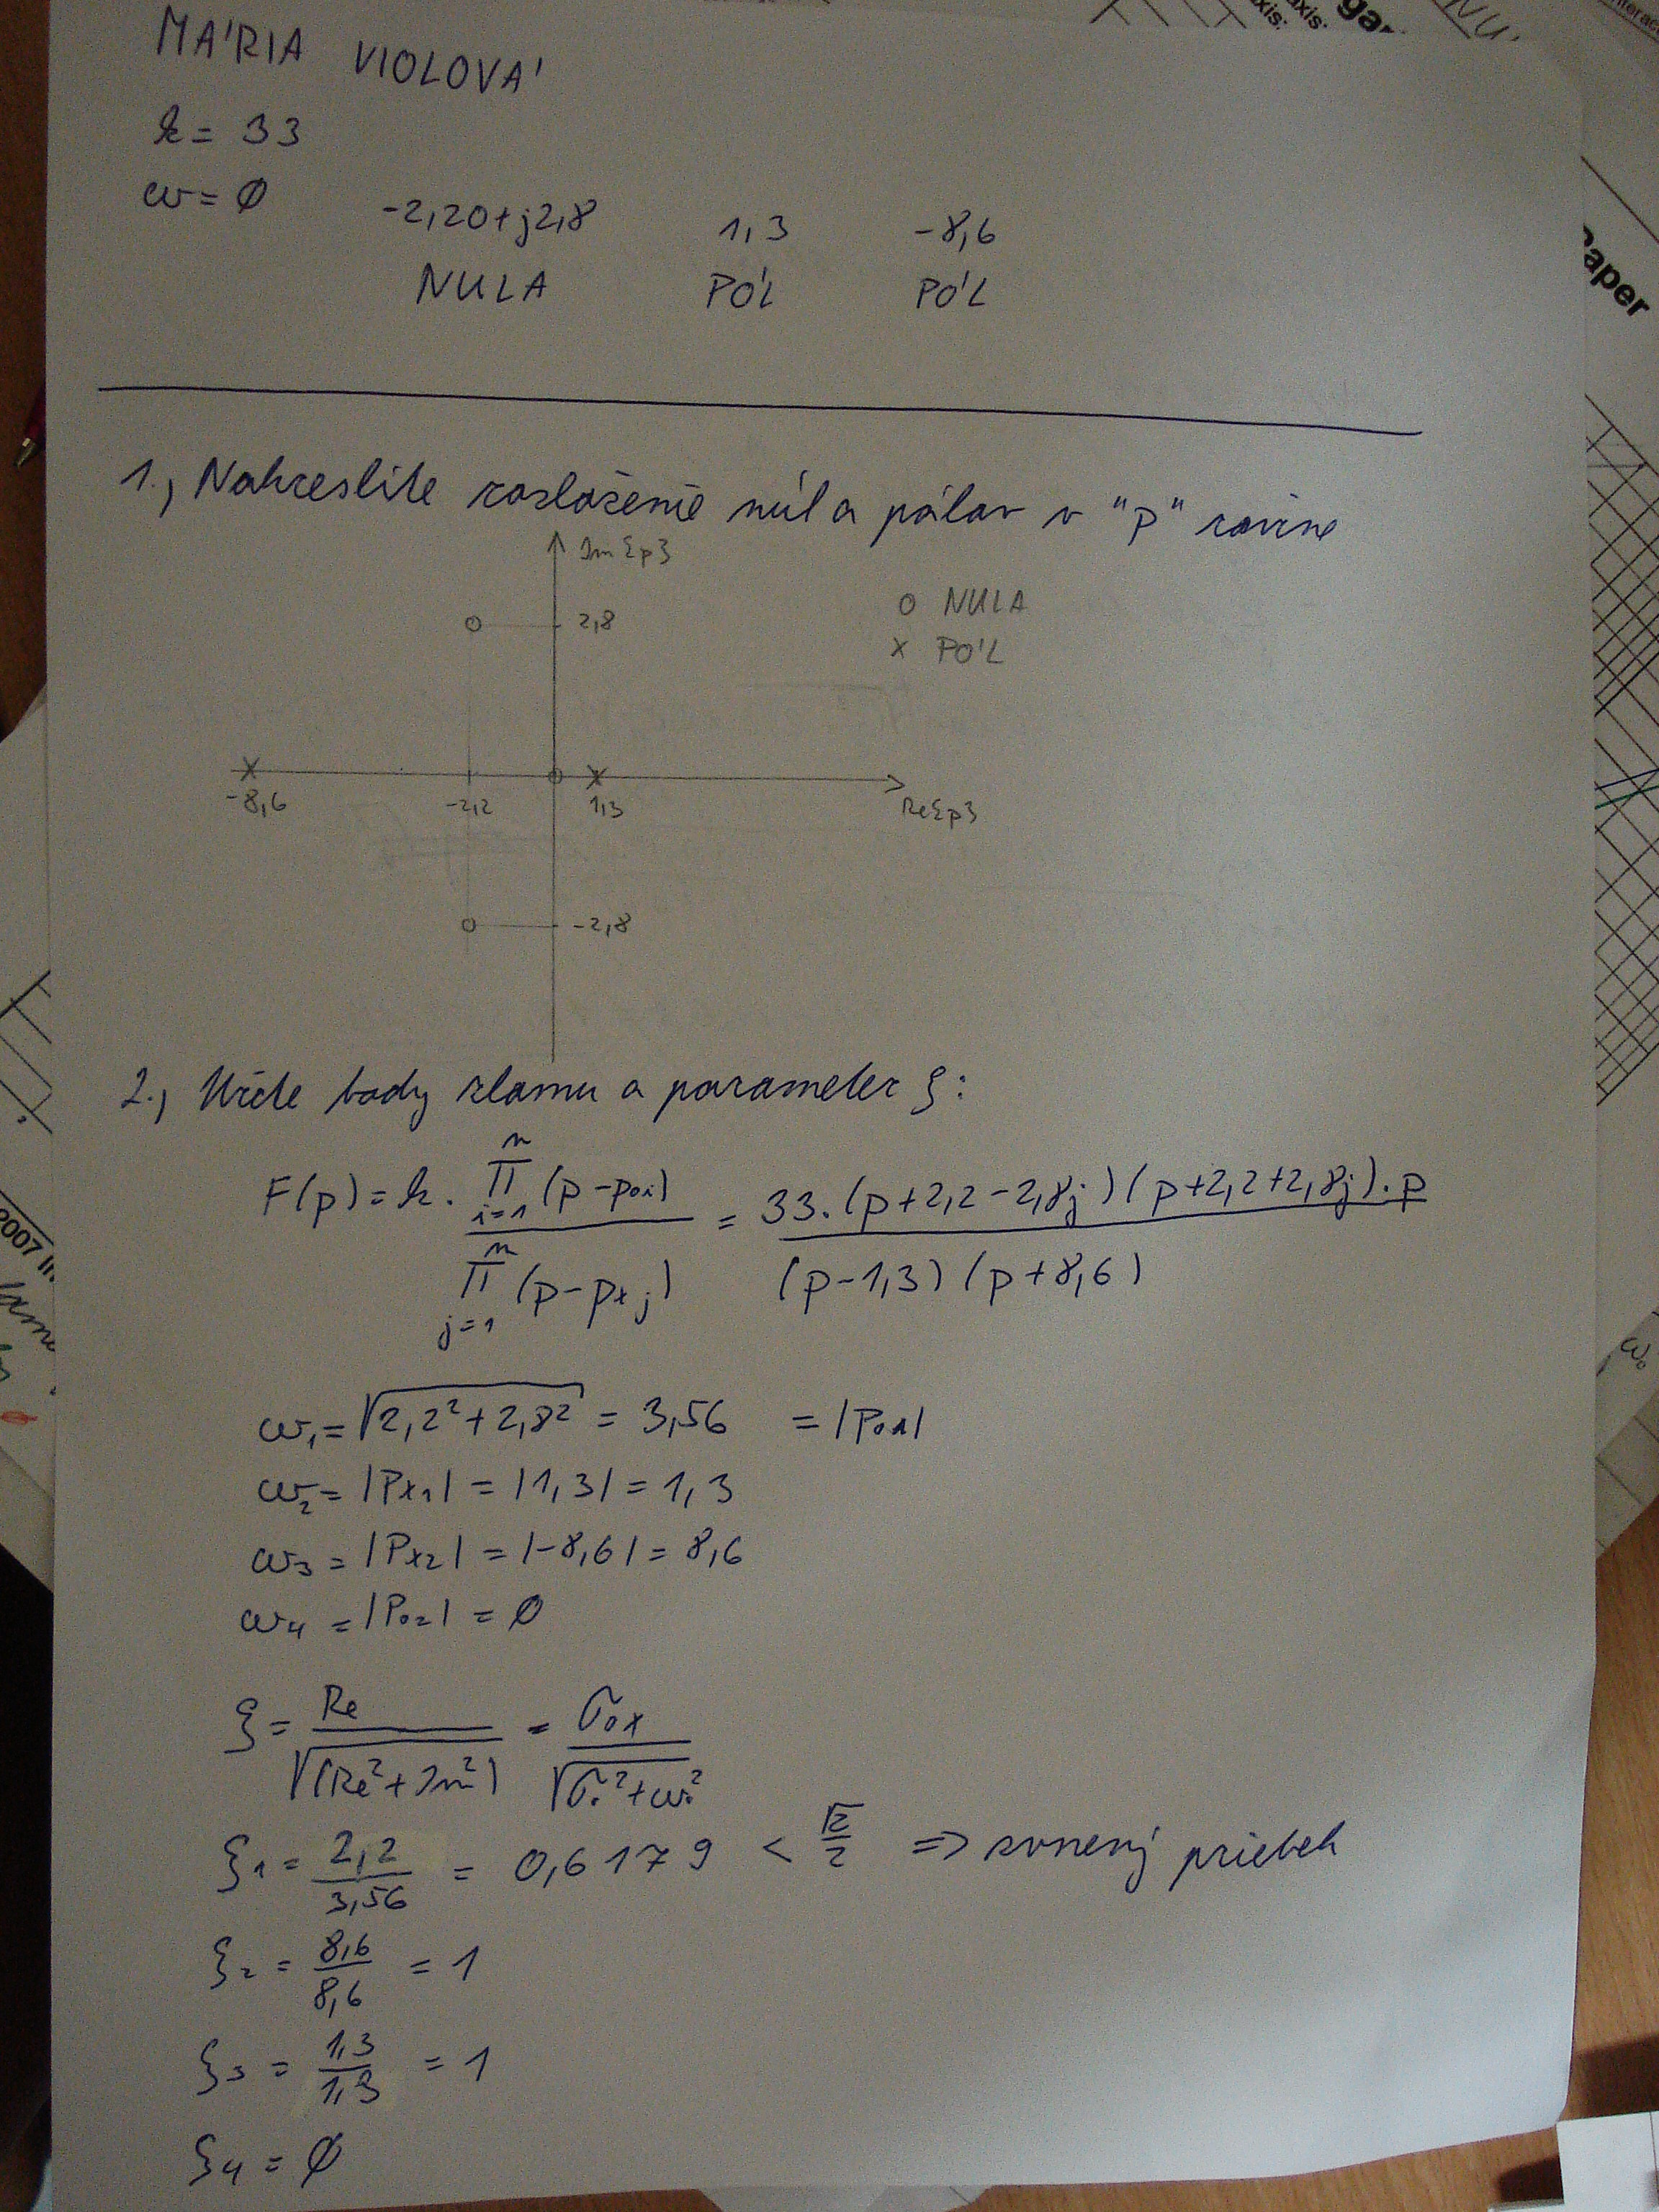 MÁRIA VIOLOVÁ
k = 33
ω = Ø
-2,20+j2,8 1,3 -8,6
NULA PÓL PÓL
1., Nakreslite rozloženie núl a pólov v "p" rovine
Im{p}
o NULA
2,8
x PÓL
-8,6 -2,2 1,3
Re{p}
-2,8
2., Určte body zlamu a parameter ξ:
F(p) = k . ∏ⁿᵢ₌₁ (p-p₀ᵢ) / ∏ⁿⱼ₌₁ (p-pₓⱼ) = 33.(p+2,2-2,8j)(p+2,2+2,8j).p / (p-1,3)(p+8,6)
ω₁ = √2,2²+2,8² = 3,56 = |P₀₁|
ω₂ = |Pₓ₁| = |1,3| = 1,3
ω₃ = |Pₓ₂| = |-8,6| = 8,6
ω₄ = |P₀₂| = Ø
ξ = Re / √(Re²+Im²) = σ₀ₓ / √σ₀²+ω₀²
ξ₁ = 2,2 / 3,56 = 0,6179 < √2/2 => zvnený priebeh
ξ₂ = 8,6 / 8,6 = 1
ξ₃ = 1,3 / 1,3 = 1
ξ₄ = Ø
Paper
2007 In
ω₀